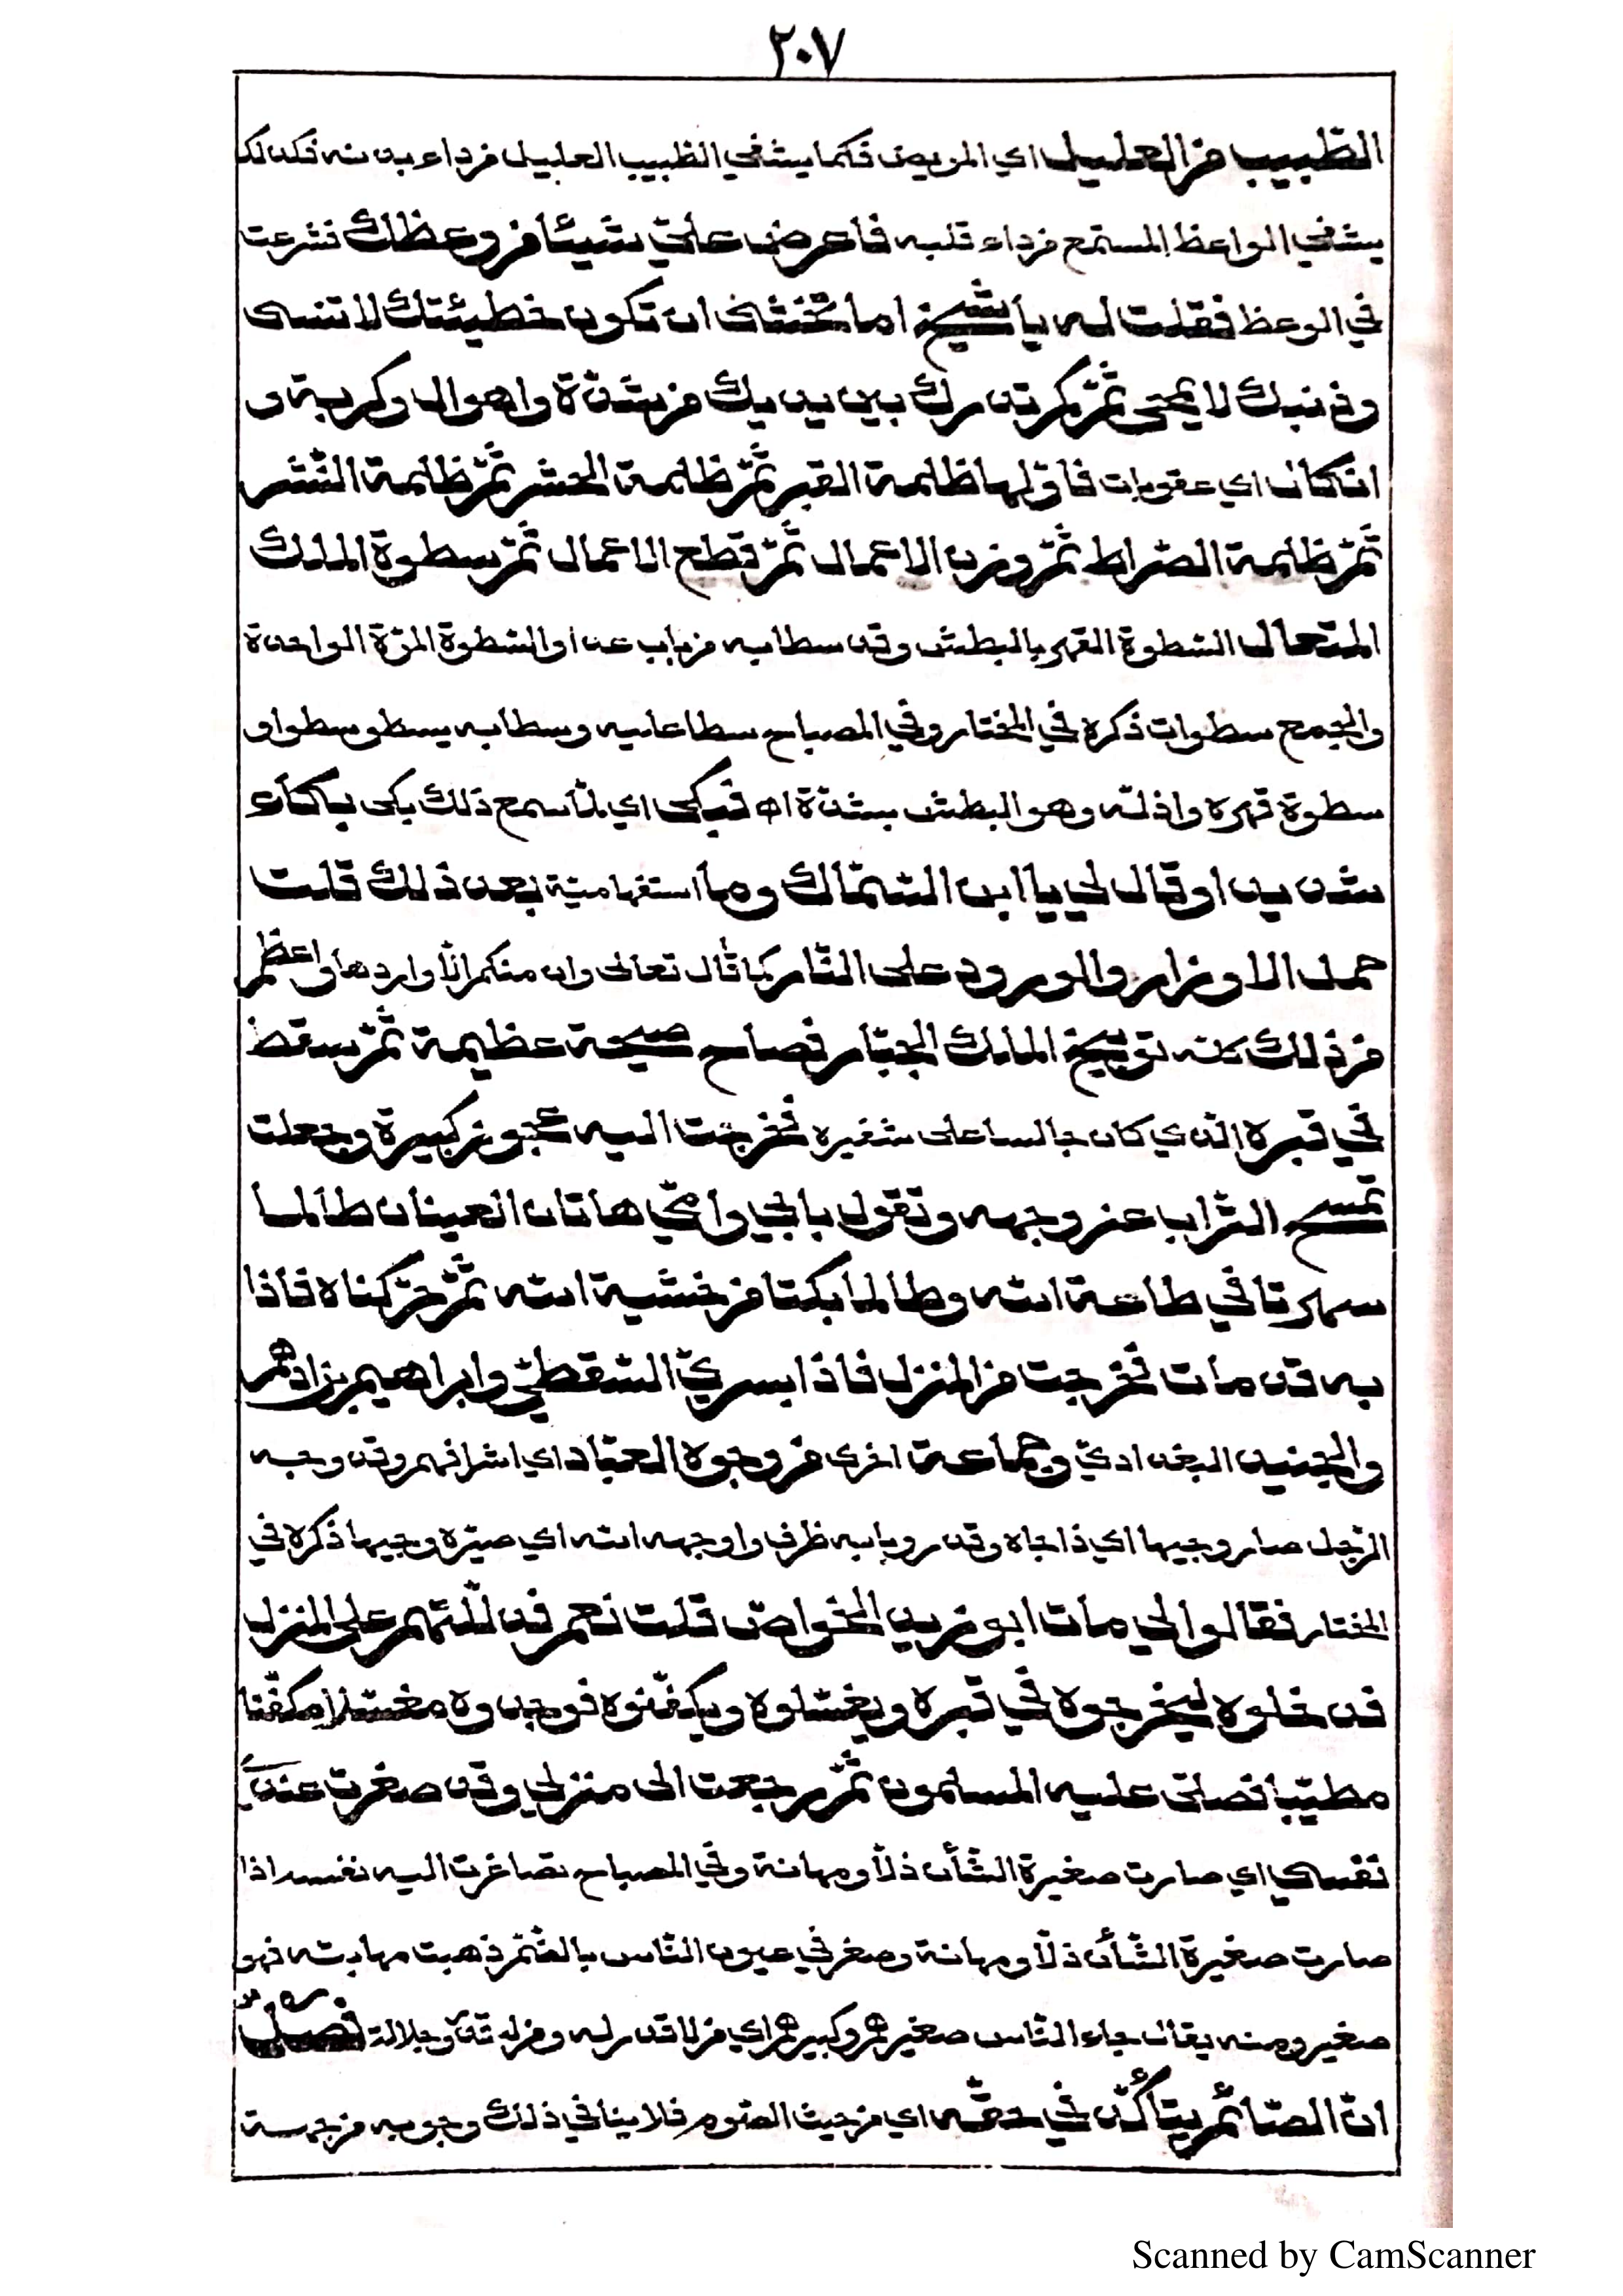 ٢٠٧
الطّبيب من العليل اي المريض فكما يشفي الطّبيب العليل من داء بدنه فكذلك
يشفي الواعظ المستمع من داء قلبه فاعرض عليّ شيئا من وعظك فشرعت
في الوعظ فقلت له يا شيخ اما تخشى ان تكون خطيئتك لا تنسى
وذنبك لا يمحى ثمّ كم تدرك بين يديك من شدّة واهوال وكربة و
انكال اي عقوبات فاوّلها ظلمة القبر ثمّ ظلمة الحشر ثمّ ظلمة النّشر
ثمّ ظلمة الصّراط ثمّ وزن الاعمال ثمّ قطع الاعمال ثمّ سطوة الملك
المتعال السّطوة القهر بالبطش وقد سطا به من باب عدا والسّطوة المرّة الواحدة
والجمع سطوات ذكره في المختار وفي المصباح سطا عليه وسطا به يسطو سطوا و
سطوة قهره واذلّه وهو البطش بشدّة اه فبكى اي لمّا سمع ذلك بكى بكاء
شديدا وقال لي يا ابن السّمّاك وما استفهاميّة بعد ذلك قلت
حمل الاوزار والورود على النّار كما قال تعالى وان منكم الّا واردها واعظم
من ذلك كلّه توبيخ الملك الجبّار فصاح صيحة عظيمة ثمّ سقط
في قبره الّذي كان جالسا على شفيره فخرجت اليه عجوز كبيرة وجعلت
تمسح التّراب عن وجهه وتقول بابي وامّي هاتان العينان طالما
سهرتا في طاعة الله وطالما بكتا من خشية الله ثمّ حرّكناه فاذا
به قد مات فخرجت من المنزل فاذا بسريّ السّقطيّ وابراهيم بن ادهم
والجنيد البغداديّ وجماعة اخرى من وجوه العبّاد اي اشرافهم وقد وجه
الرّجل صار وجيها اي ذا جاه وقدر وبابه ظرف واوجهه الله اي صيّره وجيها ذكره في
المختار فقالوا لي مات ابو زيد الخواصّ قلت نعم فدللتهم على المنزل
فدخلوه ليخرجوه في قبره ويغسّلوه ويكفّنوه فوجدوه مغسّلا مكفّنا
مطيّبا فصلّى عليه المسلمون ثمّ رجعت الى منزلي وقد صغرت عنديّ
نفسي اي صارت صغيرة الشّأن ذلّا ومهانة وفي المصباح تصاغرت اليه نفسه اذا
صارت صغيرة الشّأن ذلّا ومهانة وصغر في عيون النّاس بالضّمّ ذهبت مهابته فهو
صغير ومنه يقال جاء النّاس صغيرهم وكبيرهم اي من لا قدر له ومن له قدر وجلالة فصل
انّ الصّائم يتأكّد في حقّه اي من حيث الصّوم فلا ينافي ذلك وجوبه من جهة
Scanned by CamScanner